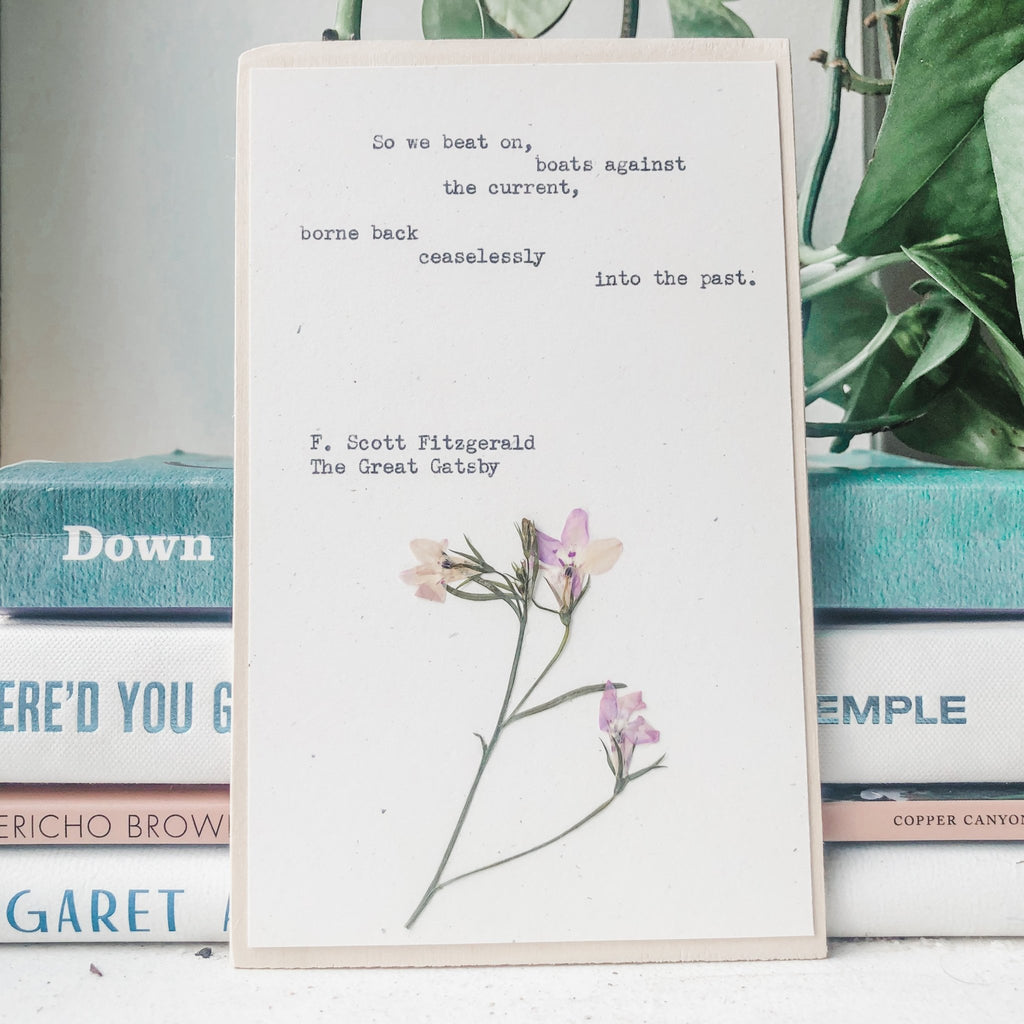 So we beat on,
boats against
the current,
borne back
ceaselessly
into the past.
F. Scott Fitzgerald
The Great Gatsby
Down
ERE'D YOU G
EMPLE
ERICHO BROWN
COPPER CANYON
GARET A